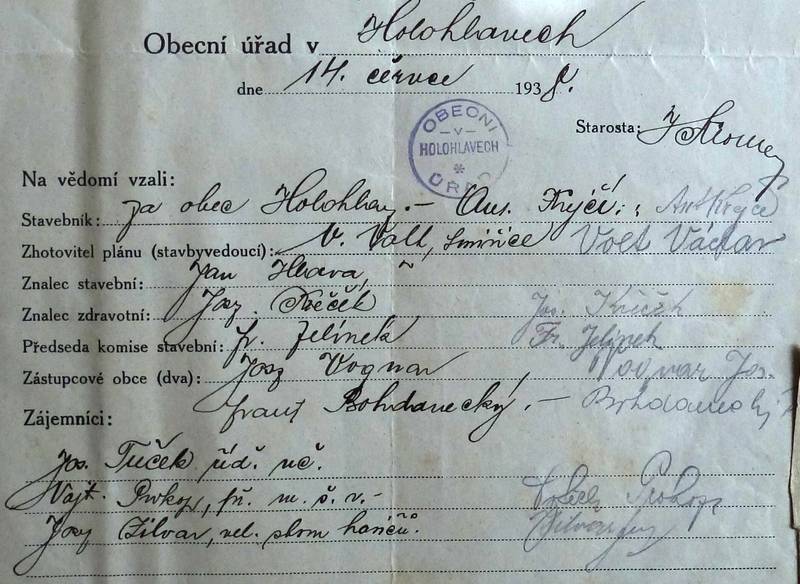 Obecní úřad v Holohlavech
dne 14. července 1938.
OBECNÍ
-v-
HOLOHLAVECH
*
ÚŘAD
Starosta:
Na vědomí vzali:
Stavebník: za obec Holohlavy. - Ant. Krejčí.
Zhotovitel plánu (stavbyvedoucí): V. Volt, Smiřice Volt Václav
Znalec stavební: Jan Hlava,
Znalec zdravotní: Jos. Křeček
Předseda komise stavební: Fr. Jelínek Fr. Jelínek
Zástupcové obce (dva): Josef Vognar, Vognar Jos.
Frant Bohdanecký. -
Zájemníci:
Jos. Tuček říd. uč.
Vojt. Prokop, př. m. š. r. - Prokop
Josef Zilvar, vel. sboru hasičů.